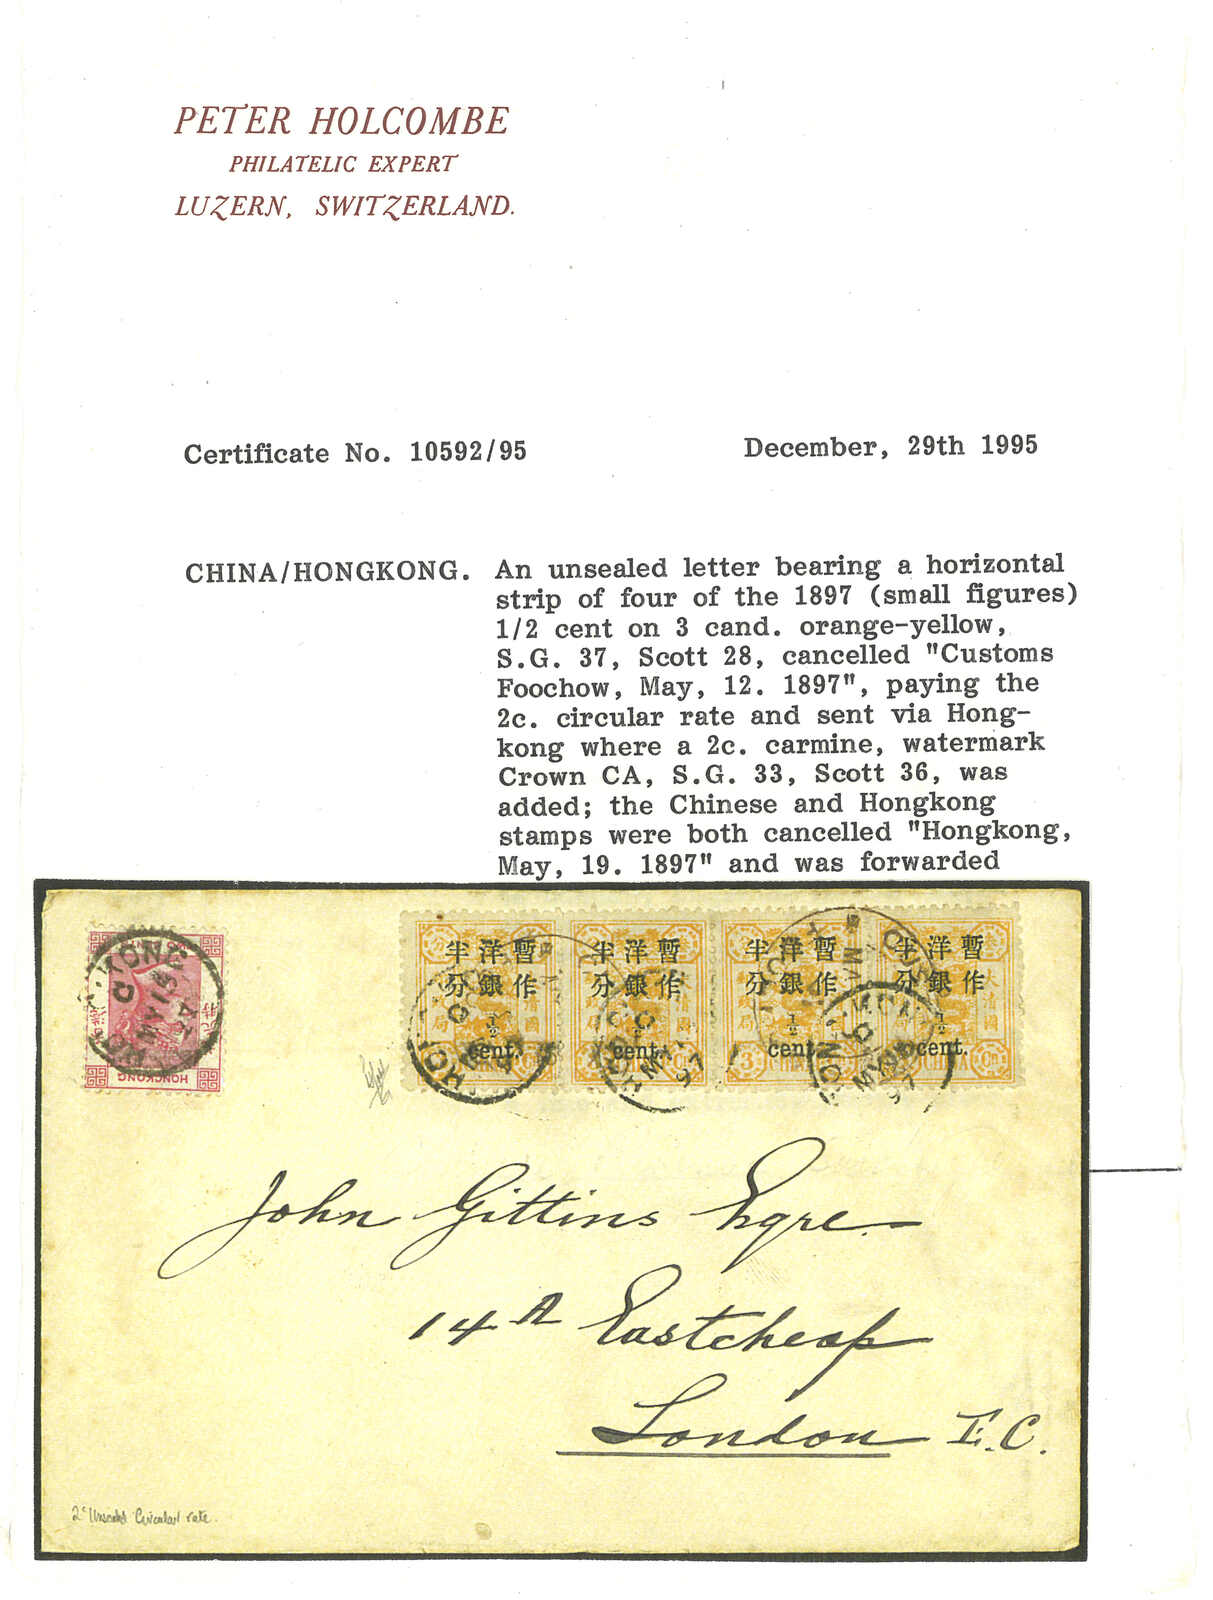 PETER HOLCOMBE
PHILATELIC EXPERT
LUZERN, SWITZERLAND.
Certificate No. 10592/95 December, 29th 1995
CHINA/HONGKONG. An unsealed letter bearing a horizontal
strip of four of the 1897 (small figures)
1/2 cent on 3 cand. orange-yellow,
S.G. 37, Scott 28, cancelled "Customs
Foochow, May, 12. 1897", paying the
2c. circular rate and sent via Hong-
kong where a 2c. carmine, watermark
Crown CA, S.G. 33, Scott 36, was
added; the Chinese and Hongkong
stamps were both cancelled "Hongkong,
May, 19. 1897" and was forwarded
HONGKONG
暫作洋銀半分
½
cent.
暫作洋銀半分
½
cent.
暫作洋銀半分
½
cent.
暫作洋銀半分
½
cent.
CHINA
John Gittins Esqre
14A Eastcheap
London E.C.
2c Unsealed Circular rate.